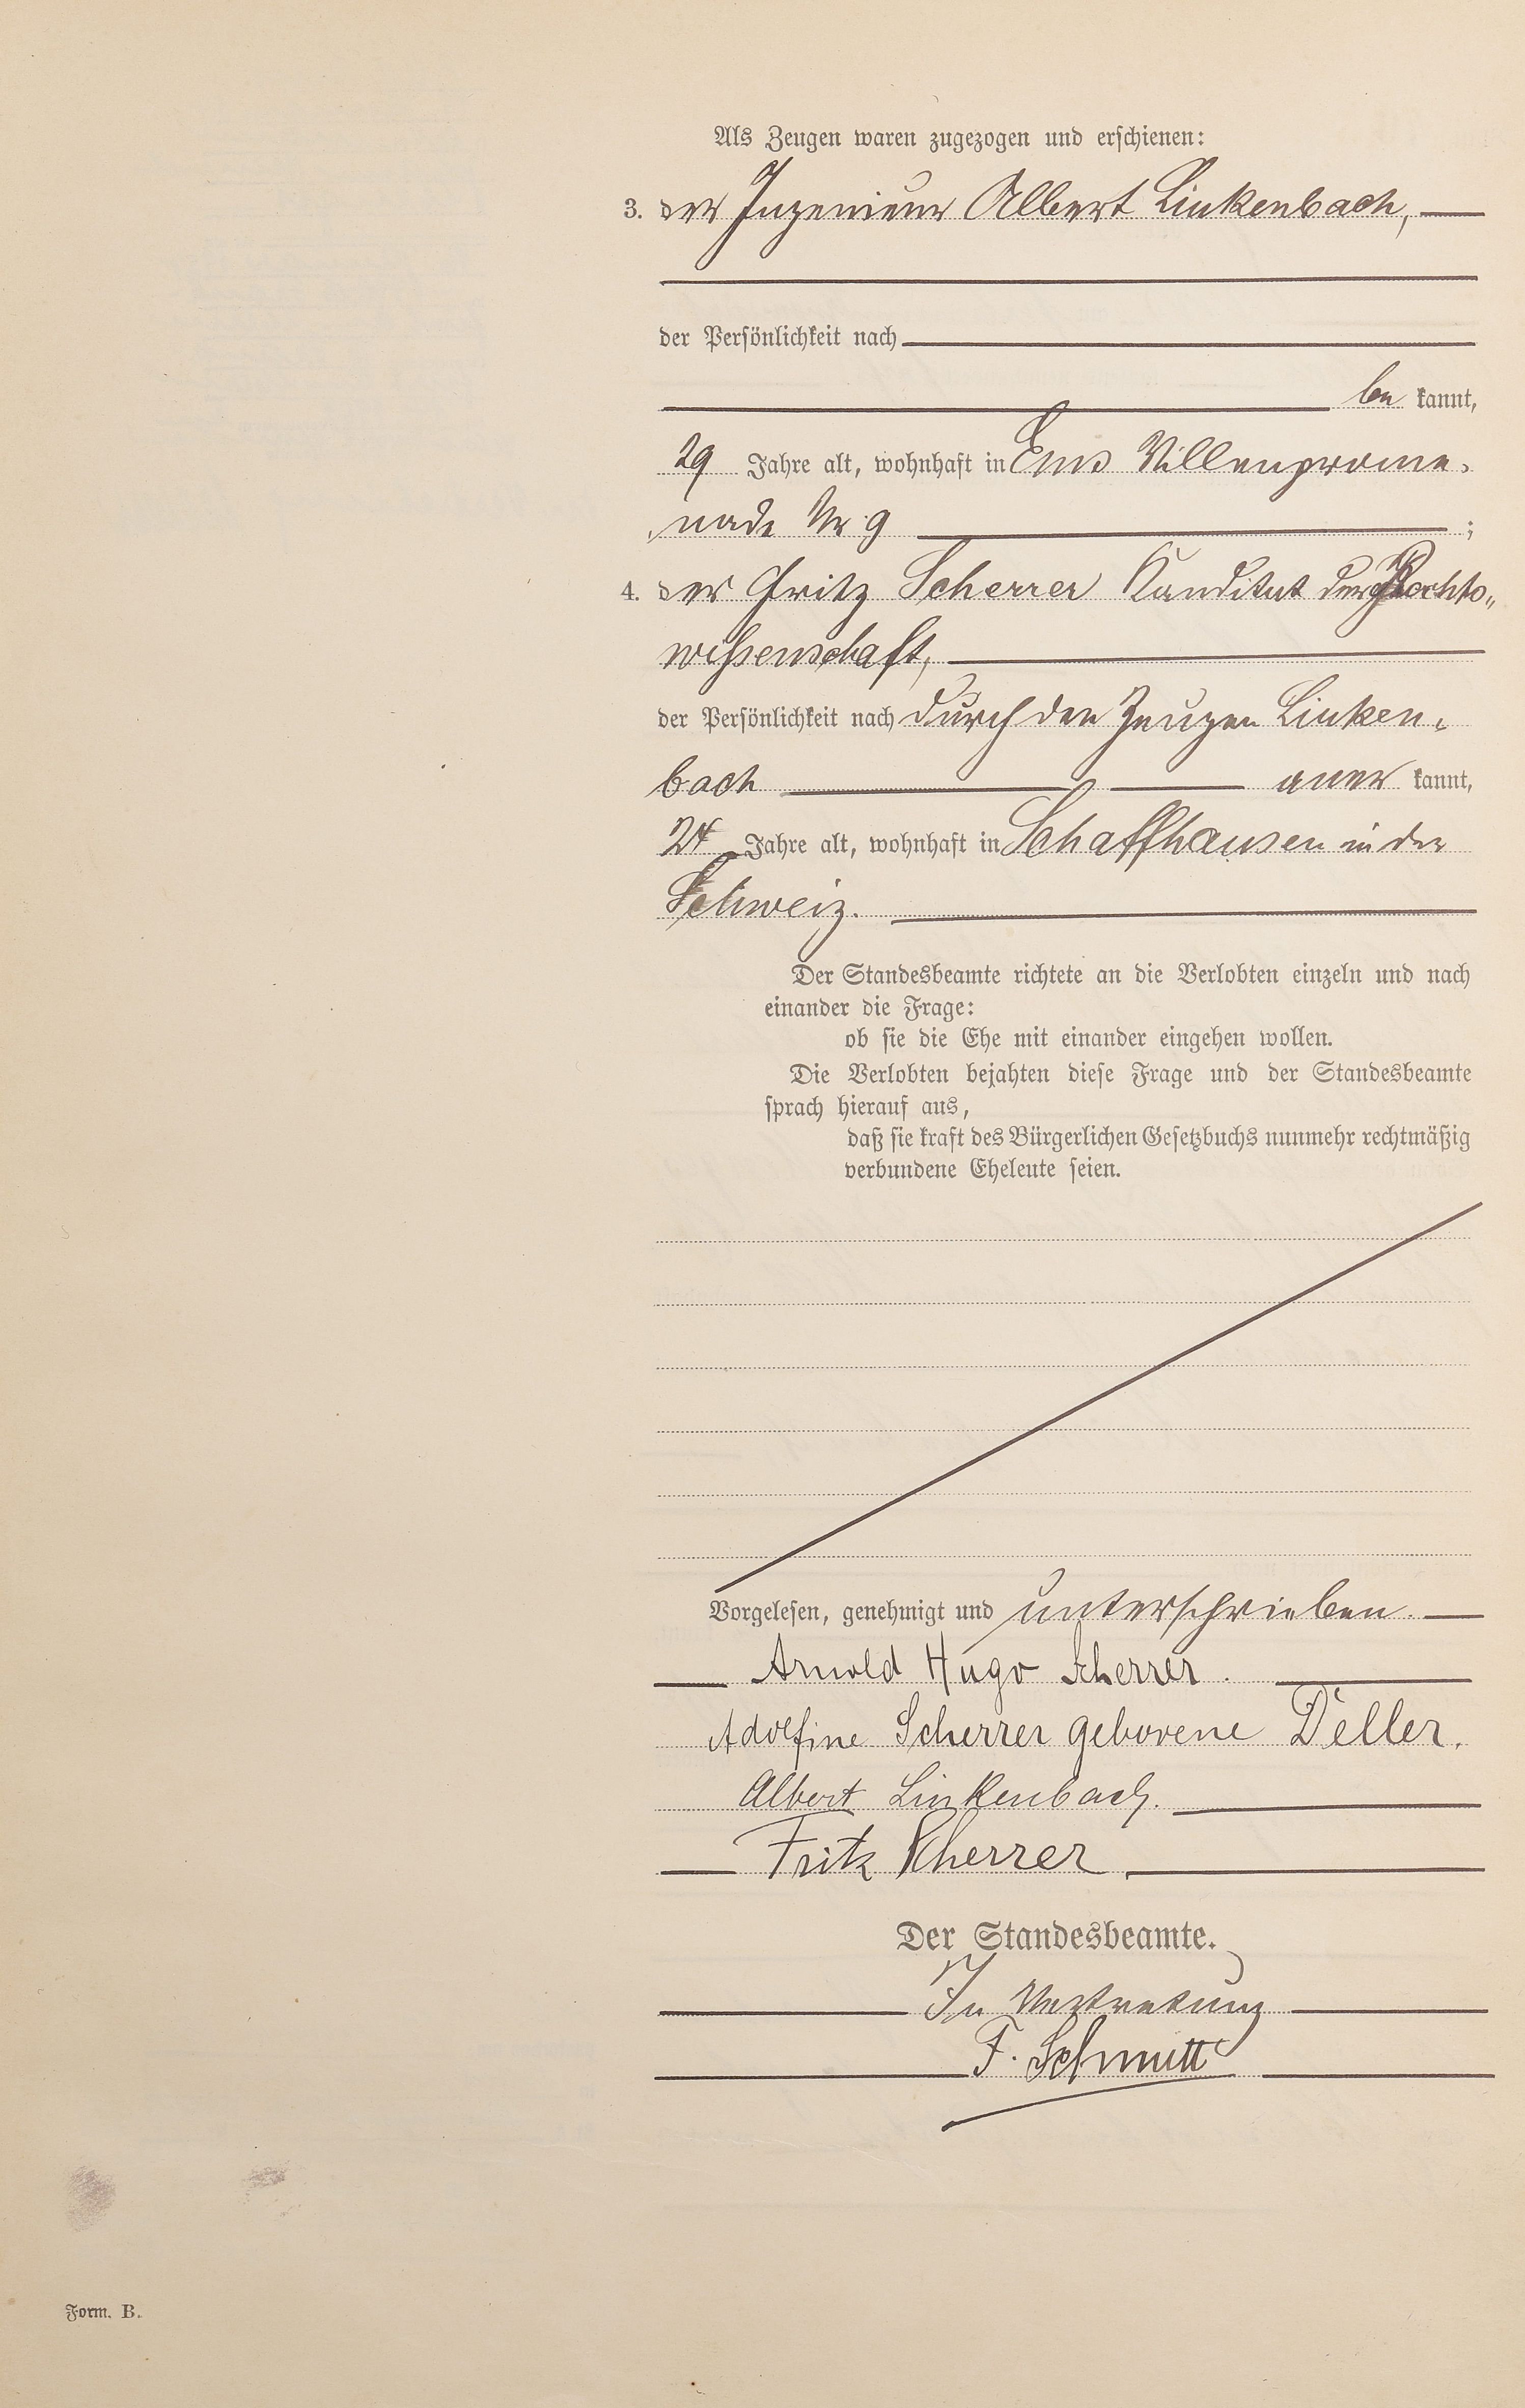 Als Zeugen waren zugezogen und erschienen:
3. der Ingenieur Albert Linkenbach,
der Persönlichkeit nach
be kannt,
29 Jahre alt, wohnhaft in Ems Villenprome-
nade Nr. 9 ;
4. der Fritz Scherrer Kanditat der Rechts-
wissenschaft,
der Persönlichkeit nach durch den Zeugen Linken-
bach aner kannt,
24 Jahre alt, wohnhaft in Schaffhausen in der
Schweiz.
Der Standesbeamte richtete an die Verlobten einzeln und nach
einander die Frage:
ob sie die Ehe mit einander eingehen wollen.
Die Verlobten bejahten diese Frage und der Standesbeamte
sprach hierauf aus,
daß sie kraft des Bürgerlichen Gesetzbuchs nunmehr rechtmäßig
verbundene Eheleute seien.
Vorgelesen, genehmigt und unterschrieben.
Arnold Hugo Scherrer.
Adolfine Scherrer geborene Deller.
Albert Linkenbach.
Fritz Scherrer
Der Standesbeamte.
In Vertretung
F. Schmitt
Form. B.